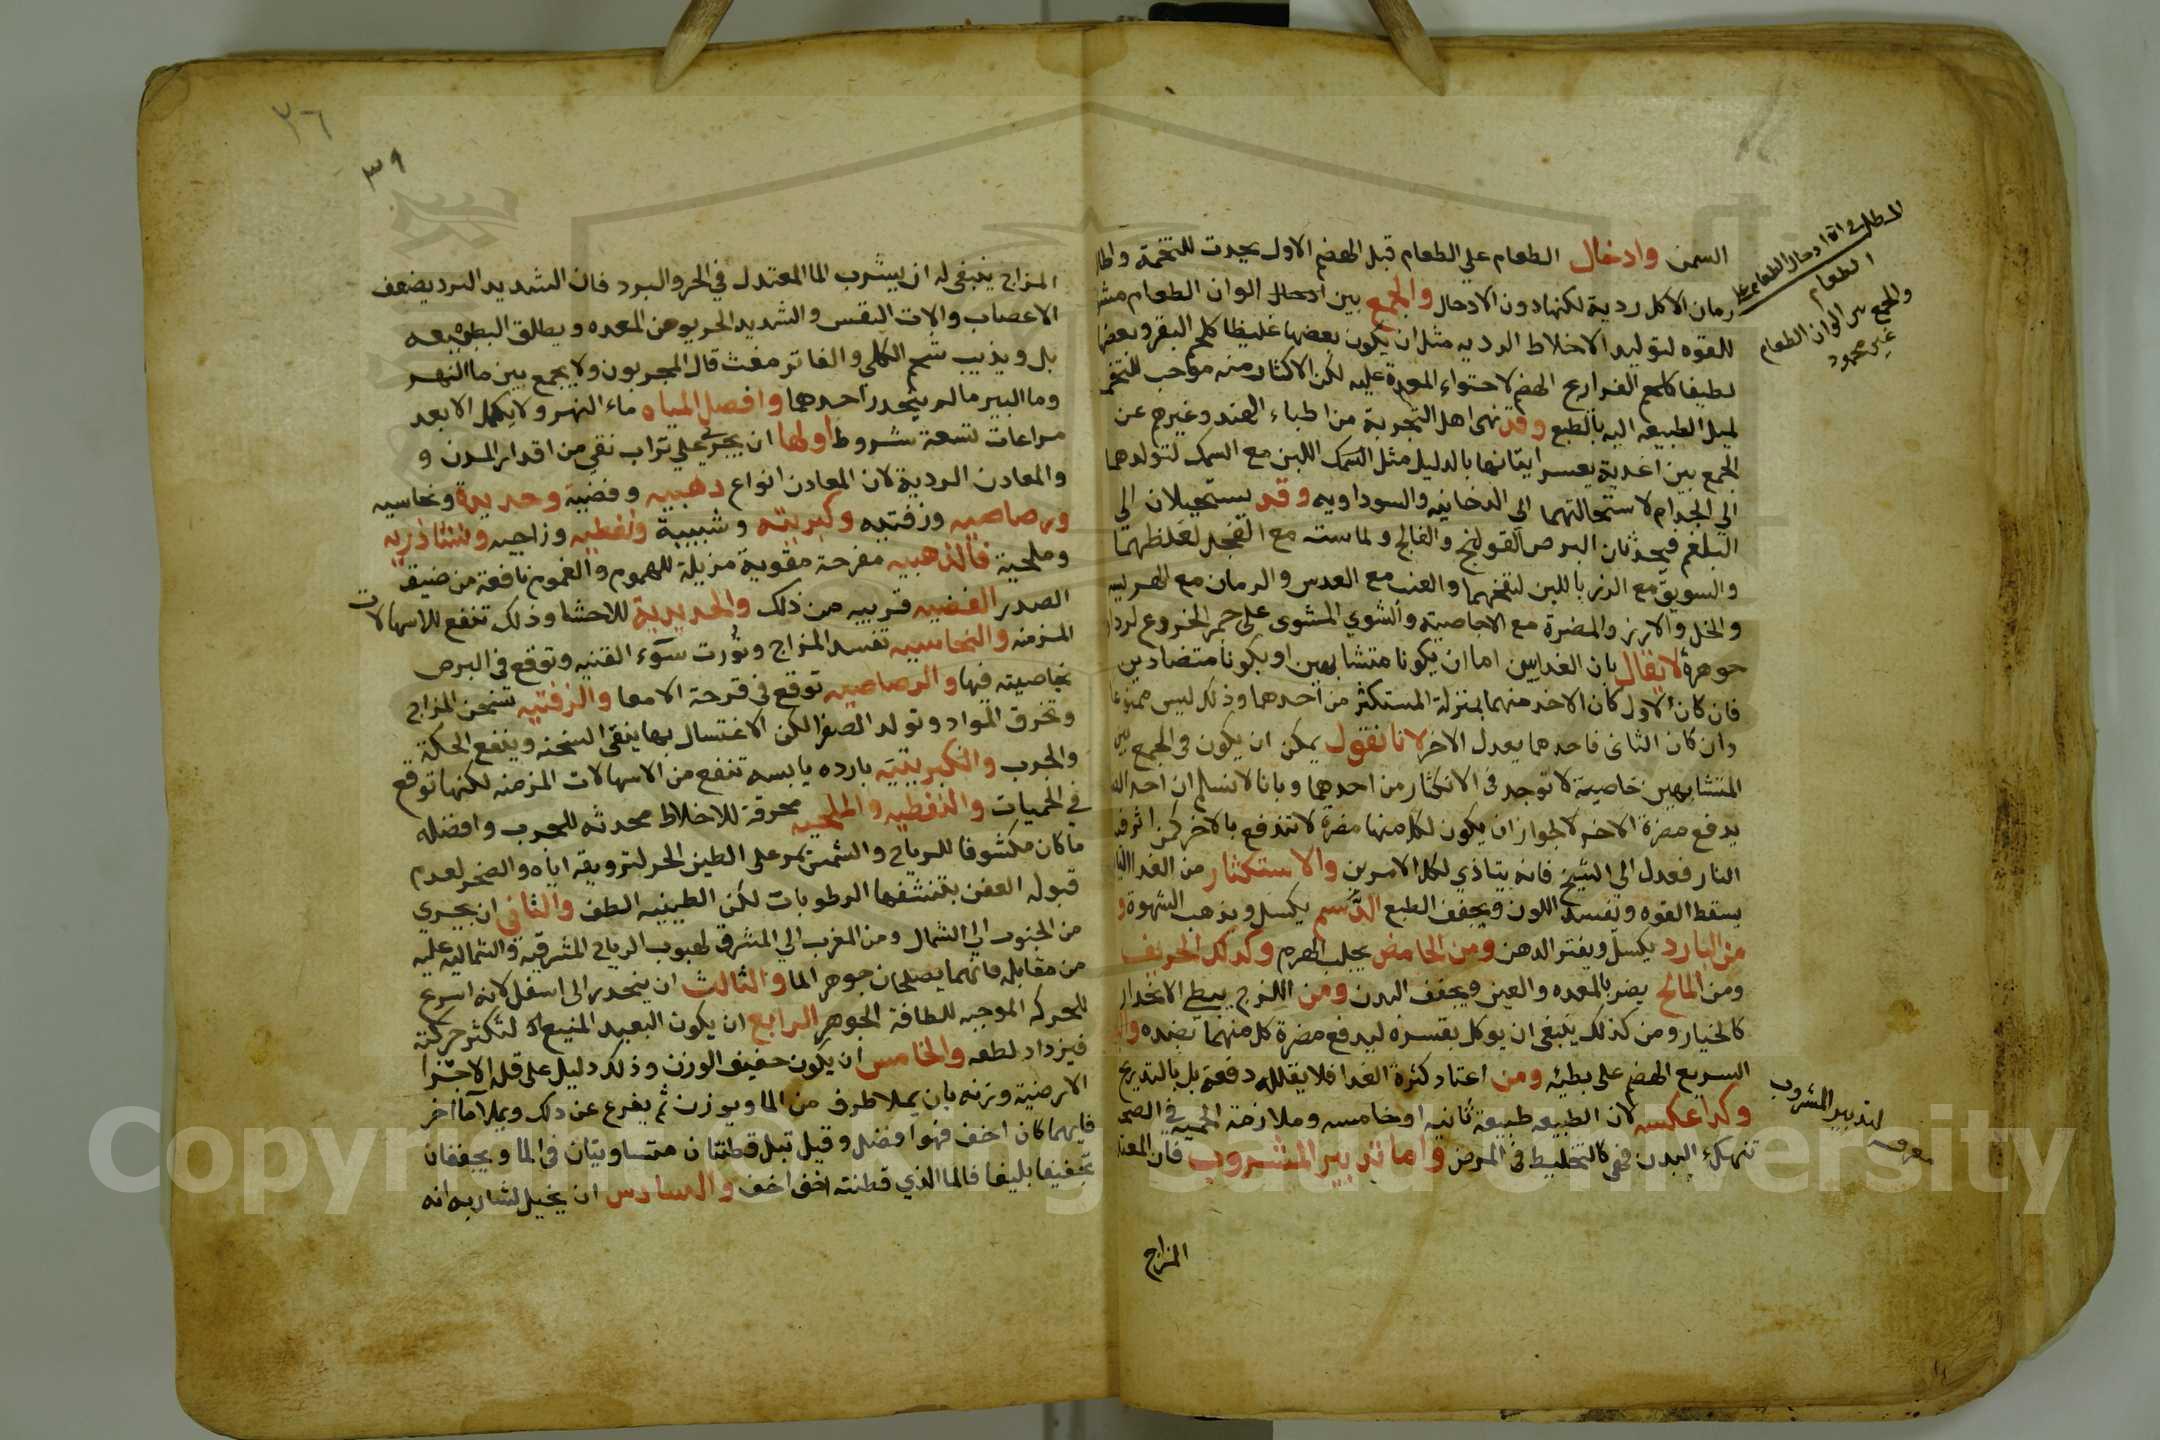 السمن وادخال الطعام علي الطعام قبل الهضم الاول يحدث للتخمة واطا
زمان الاكل ردية لكنها دون الادخال والجمع بين أدخال الوان الطعام مشو
للقوه لتوليد الاخلاط الرديه مثل ان يكون بعضها غليظا كلحم البقر وبعضها
لطيفا كلحم الفراريج الهضم لاحتواء المعدة عليه لكن الاكثار منه موجب للتخم
لميل الطبيعه اليه بالطبع وقد نهى اهل التجربة من اطباء الهند وغيرهم عن
الجمع بين اغدية يعسر اتيانها بالدليل مثل السمك اللبن مع السمك لتولدهما
الي الجدام لاستحالتهما الي الدخانيه والسوداويه وقد يستحيلان الي
البلغم فيحدثان البرص القولنج والفالج ولماسته مع الفجل لغلظهما
والسويق مع الرز باللبن لنفخهما والعنب مع العدس والرمان مع الهريسه
والخل والارز والمضرة مع الاجاصية والشوي المشوى على جمر الخروع لردا
جوهرة لايقال بان الغدايين اما ان يكونا متشابهين او يكونا متضادين
فان كان الاول كان الاخد منهما بمنزلة المستكثر من احدهما وذلك ليس ممنوعا
وان كان الثانى فاحدهما يعدل الاخر لانا نقول يمكن ان يكون فى الجمع بين
المتشابهين خاصية لا توجد فى الاكثار من احدهما وبانا لانسلم ان احد الا
يدفع مضرة الاخر لجواز ان يكون لكل منها مضرة لا تندفع بالاخر كمن اثر فيه
النار فعدل الي الشيخ فانه يتاذي لكلا الامرين والاستكثار من الغدا اليا
يسقط القوه ويفسد اللون ويجفف الطبع الدسم يكسل ويذهب الشهوة و
من البارد يكسل ويفتر الدهن ومن الحامض يجلب الهرم وكدلك الحريف
ومن المالح يضر بالمعده والعين ويجفف البدن ومن اللزج يبطي الانحدار
كالخيار ومن كذلك ينبغى ان يوكل بقسره ليدفع مضرة كل منهما تضده وال
السريع الهضم على بطيئه ومن اعتاد كثرة الغدا فلا يقلله دفعة بل بالتدريج
وكدا عكسه لان الطبيعه طبيعة ثانيه او خامسه وملازمة الحميه في الصح
تنهك البدن فهي كالتخليط فى المرض واما تدبير المشروب فان المعتد
المزاج
المطلب فى ادخال الطعام على
الطعام
والجمع بين الوان الطعام
غير محمود
معرفه تدبير المشروب
٣٦
٣٩
المزاج ينبغى له ان يشرب الما المعتدل في الحر والبرد فان الشديد البرد يضعف
الاعصاب والات النفس والشديد الحر يوهن المعده ويطلق البطن بعه
بل ويذيب شحم الكلى والفاتر مغث قال المجربون ولا يجمع بين ما النهر
وما البير مالم ينحدر احدهما وافصل المياه ماء النهر ولا يكمل الا بعد
مراعات تسعة شروط أولها ان يجري علي تراب نقي من اقدار المدن و
والمعادن الردية لان المعادن انواع دهبيه وفضية وحديدة ونحاسيه
ورصاصيه وزفتيه وكبريتيه وشبيبة ونفطيه وزاجيه ونشاذريه
وملحية فالذهبيه مفرحة مقوية مزيلة للهموم والغموم نافعة من ضيق
الصدر الفضيه قريبه من ذلك والحديدية للاحشا وذلك تنفع للاسهالات
المزمنه والنحاسيه تفسد المزاج وتورث سوء القنيه وتوقع في البرص
بخاصيته فيها والرصاصيه توقع في قرحة الامعا والزفتيه تسخن المزاج
وتخرق المواد وتولد الصفرا لكن الاغتسال بها ينقي السخنه وينفع الحكة
والجرب والكبريتيه بارده يابسه تنفع من الاسهالات المزمنه لكنها توقع
في الحميات والنفطيه والملحيه محرقة للاخلاط محدثه للجرب وافضله
ما كان مكشوفا للرياح والشمس يمر على الطين الحر لترويقه اياه والصخر لعدم
قبوله العفن بتنشفها الرطوبات لكن الطينيه الطف والثاني ان يجري
من الجنوب الي الشمال ومن المغرب الي المشرق لهبوب الرياح المشرقية والشماليه عليه
من مقابله فانهما يصلحان جوهر الما والثالث ان ينحدر الى اسفل لانه اسرع
للحركه الموجبه للطافة الجوهر الرابع ان يكون البعيد المنيع لتكثر حركته
فيزداد لطفه والخامس ان يكون خفيف الوزن وذلك دليل على قله الاجزا
الارضية وتزنه بان يملا ظرف من الما ويوزن ثم يفرغ عن دلك ويملا ما اخر
فايهما كان اخف فهو افضل وقيل تبل قطنتان متساويتان فى الما ويجففان
تجفيفا بليغا فالما الذي قطنته اخف اخف والسادس ان يخيل لشاربه انه
Copyright © King Saud University